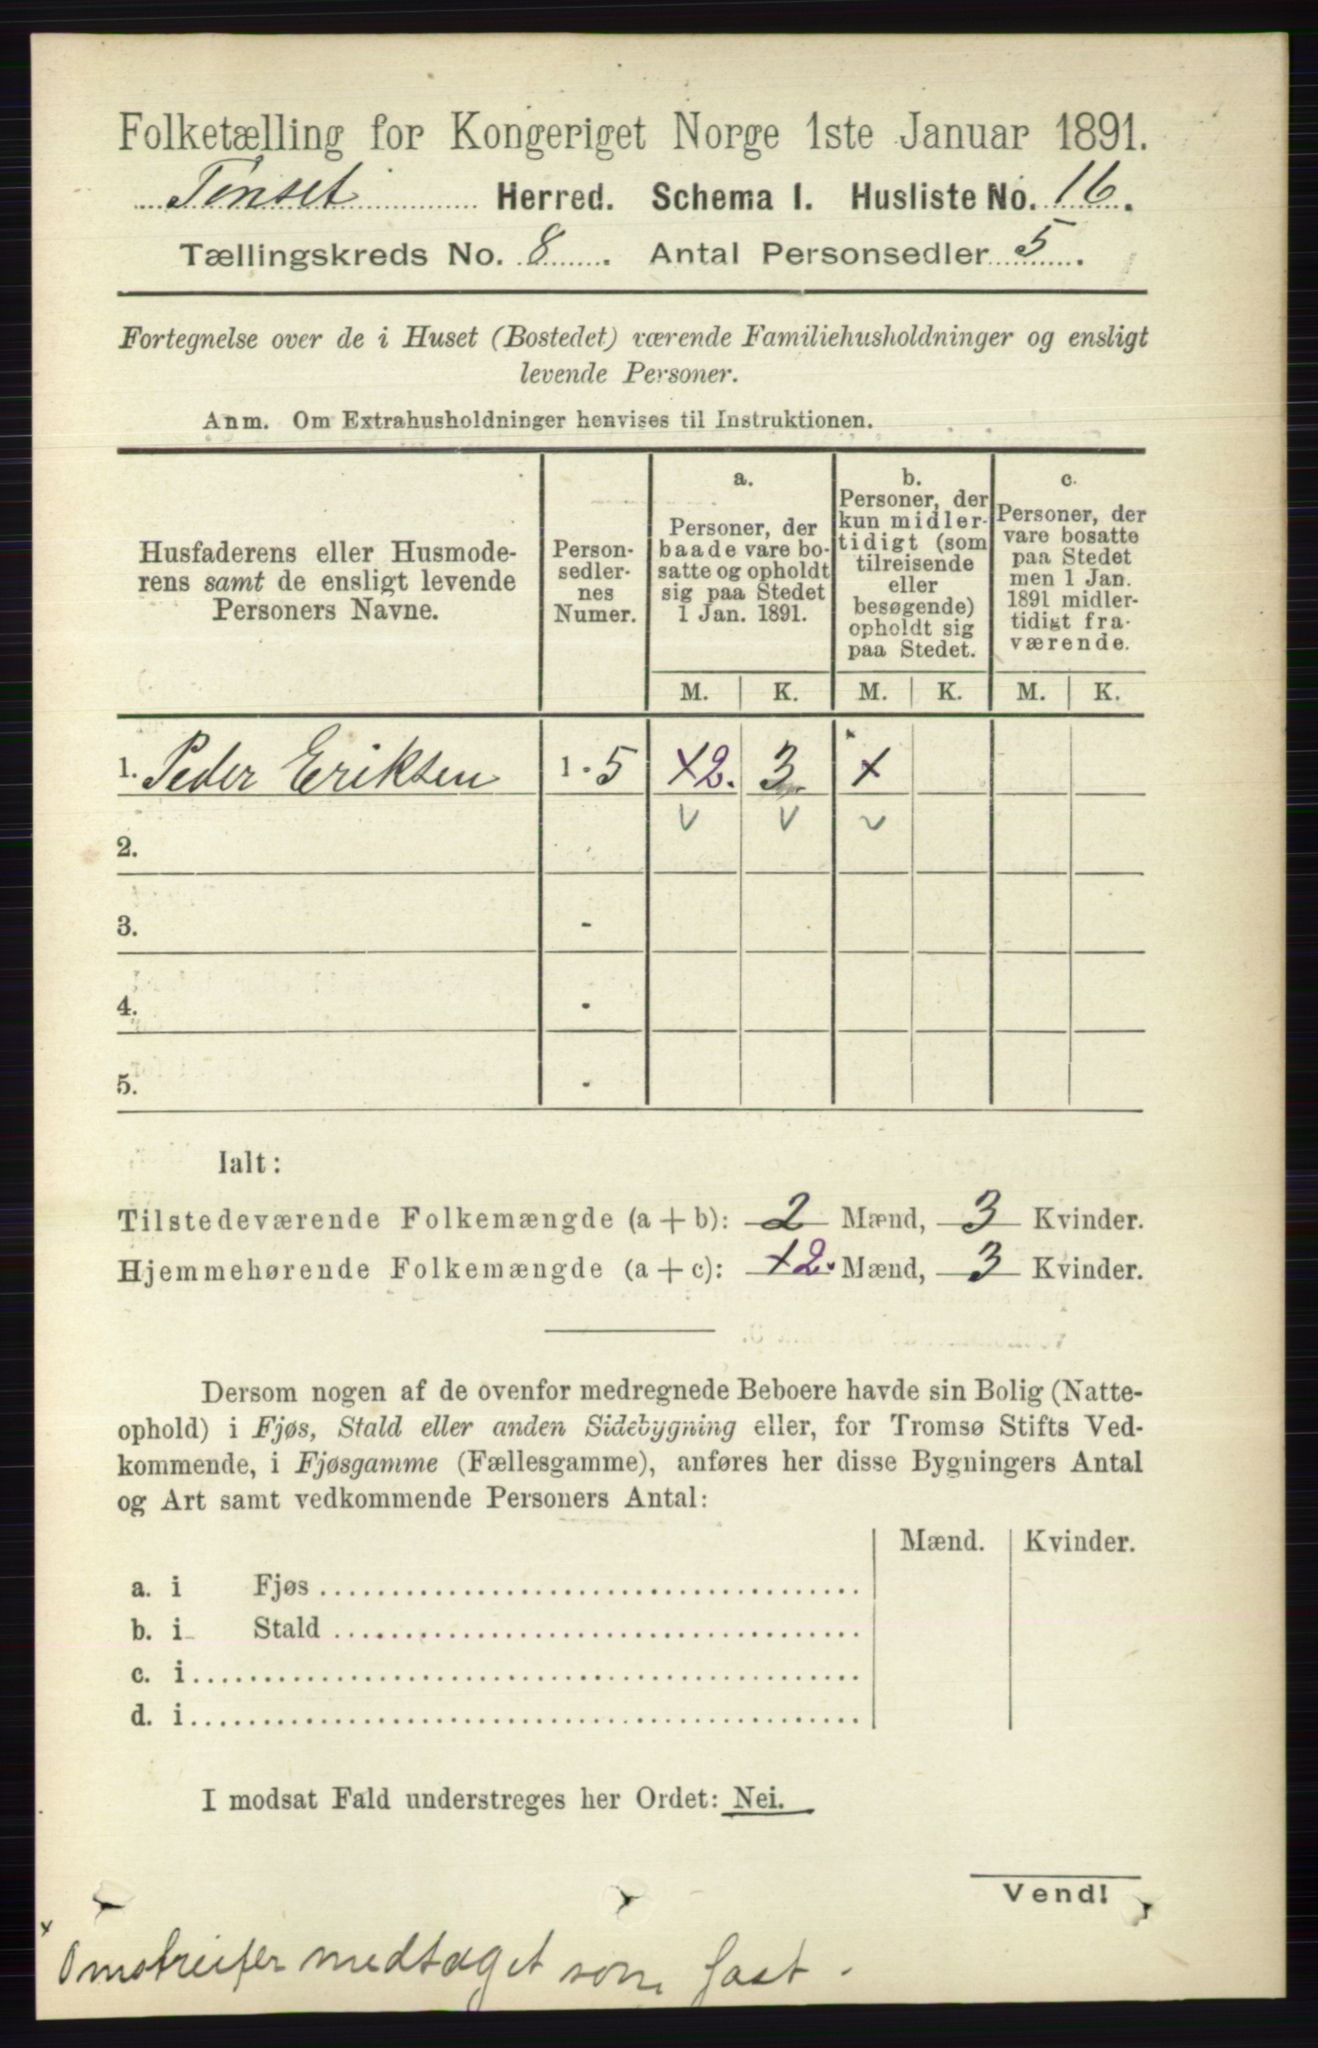 Folketælling for Kongeriget Norge 1ste Januar 1891.
Tønset Herred. Schema I. Husliste No. 16.
Tællingskreds No. 8. Antal Personsedler 5.
Fortegnelse over de i Huset (Bostedet) værende Familiehusholdninger og ensligt
levende Personer.
Anm. Om Extrahusholdninger henvises til Instruktionen.
Husfaderens eller Husmode-
rens samt de ensligt levende
Personers Navne.
Person-
sedler-
nes
Numer.
a.
Personer, der
baade vare bo-
satte og opholdt
sig paa Stedet
1 Jan. 1891.
b.
Personer, der
kun midler-
tidigt (som
tilreisende
eller
besøgende)
opholdt sig
paa Stedet.
c.
Personer, der
vare bosatte
paa Stedet
men 1 Jan.
1891 midler-
tidigt fra-
værende.
M. K. M. K. M. K.
1. Peder Eriksen 1 - 5 x2. 3 x
v v v
2.
3. -
4. -
5. -
Ialt:
Tilstedeværende Folkemængde (a + b): 2 Mænd, 3 Kvinder.
Hjemmehørende Folkemængde (a + c): x2. Mænd, 3 Kvinder.
Dersom nogen af de ovenfor medregnede Beboere havde sin Bolig (Natte-
ophold) i Fjøs, Stald eller anden Sidebygning eller, for Tromsø Stifts Ved-
kommende, i Fjøsgamme (Fællesgamme), anføres her disse Bygningers Antal
og Art samt vedkommende Personers Antal:
Mænd. Kvinder.
a. i Fjøs
b. i Stald
c. i
d. i
I modsat Fald understreges her Ordet: Nei.
Vend!
x Omstreifer medtaget som fast.